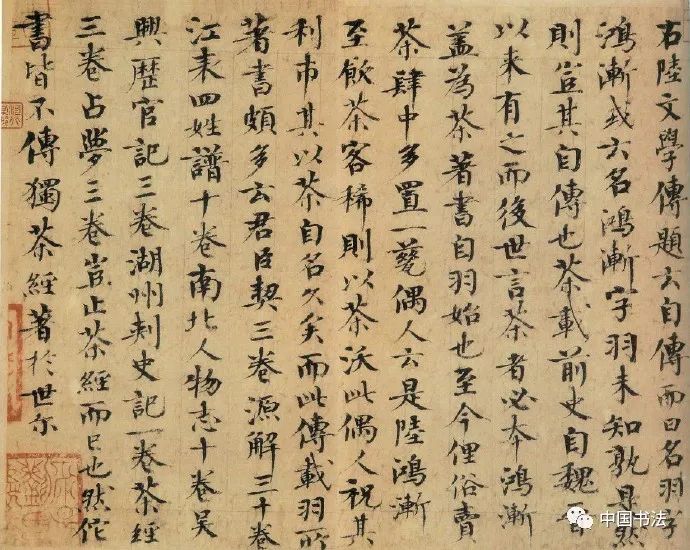 右陸文學傳題云自傳而曰名羽字
鴻漸或云名鴻漸字羽未知孰是然
則豈其自傳也茶載前史自魏晉
以來有之而後世言茶者必本鴻漸
蓋為茶著書自羽始也至今俚俗賣
茶肆中多置一甆偶人云是陸鴻漸
至飲茶客稀則以茶沃此偶人祝其
利市其以茶自名久矣而此傳載羽所
著書頗多云君臣契三卷源解三十卷
江表四姓譜十卷南北人物志十卷吳
興歷官記三卷湖州刺史記一卷茶經
三卷占夢三卷豈止茶經而已也然佗
書皆不傳獨茶經著於世尔
中国书法